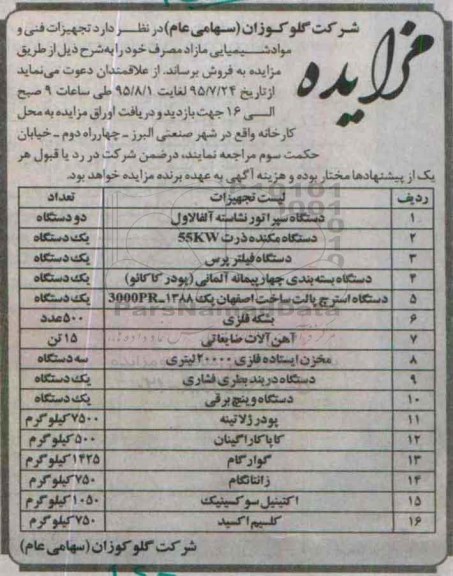 مزایده
شرکت گلوکوزان (سهامی عام) در نظر دارد تجهیزات فنی و
مواد شیمیایی مازاد مصرف خود را به شرح ذیل از طریق
مزایده به فروش برساند. از علاقمندان دعوت می نماید
از تاریخ ۹۵/۷/۲۴ لغایت ۹۵/۸/۱ طی ساعات ۹ صبح
الی ۱۶ جهت بازدید و دریافت اوراق مزایده به محل
کارخانه واقع در شهر صنعتی البرز ـ چهارراه دوم ـ خیابان
حکمت سوم مراجعه نمایند، در ضمن شرکت در رد یا قبول هر
یک از پیشنهادها مختار بوده و هزینه آگهی به عهده برنده مزایده خواهد بود.
ردیف لیست تجهیزات تعداد
۱ دستگاه سپراتور نشاسته آلفالاول دو دستگاه
۲ دستگاه مکنده ذرت 55KW یک دستگاه
۳ دستگاه فیلتر پرس یک دستگاه
۴ دستگاه بسته بندی چهار پیمانه آلمانی (پودر کاکائو) یک دستگاه
۵ دستگاه استرچ پالت ساخت اصفهان پک ۱۳۸۸ـ3000PR یک دستگاه
۶ بشکه فلزی ۵۰۰ عدد
۷ آهن آلات ضایعاتی ۱۵ تن
۸ مخزن ایستاده فلزی ۲۰۰۰۰ لیتری سه دستگاه
۹ دستگاه دربند بطری فشاری یک دستگاه
۱۰ دستگاه وینچ برقی یک دستگاه
۱۱ پودر ژلاتینه ۷۵۰۰ کیلوگرم
۱۲ کاپا کاراگینان ۵۰۰ کیلوگرم
۱۳ گوار گام ۱۴۲۵ کیلوگرم
۱۴ زانتانگام ۷۵۰ کیلوگرم
۱۵ اکتنیل سوکسینیک ۱۰۵۰ کیلوگرم
۱۶ کلسیم اکسید ۷۵۰ کیلوگرم
شرکت گلوکوزان (سهامی عام)